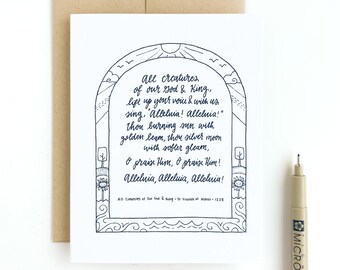 All Creatures
of our God & King,
lift up your voice & with us
sing, "Alleluia! Alleluia!"
thou burning sun with
golden beam, thou silver moon
with softer gleam,
O praise Him, O praise Him!
Alleluia, Alleluia, Alleluia!
All Creatures of Our God & King • St. Francis of Assisi • 1225
MICRON